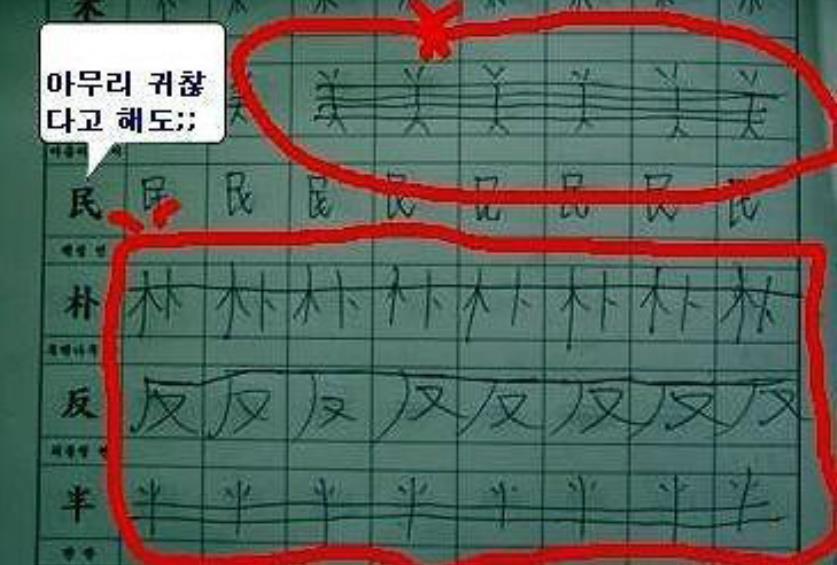 아무리 귀찮
다고 해도;;
美 美 美 美 美 美 美
民 民 民 民 民 民 民 民 民
백성 민
朴 朴 朴 朴 朴 朴 朴 朴 朴
反 反 反 反 反 反 反 反 反
半 半 半 半 半 半 半 半 半